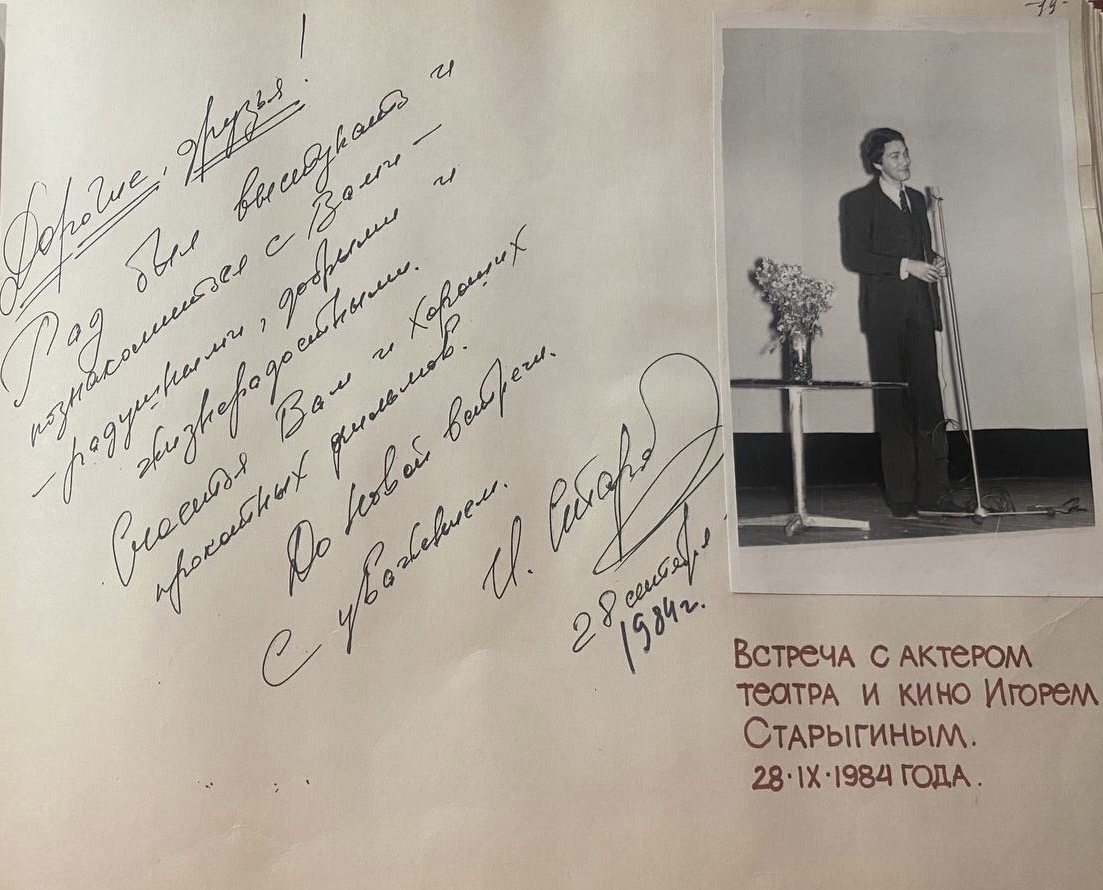 -19-
Дорогие, друзья!
Рад был выступить и
познакомиться с Вами –
– радушными, добрыми и
жизнерадостными.
Счастья Вам и хороших
прокатных фильмов.
До новой встречи.
С уважением.
И. Стары
28 сентября
1984 г.
Встреча с актером
театра и кино Игорем
Старыгиным.
28·IX·1984 года.